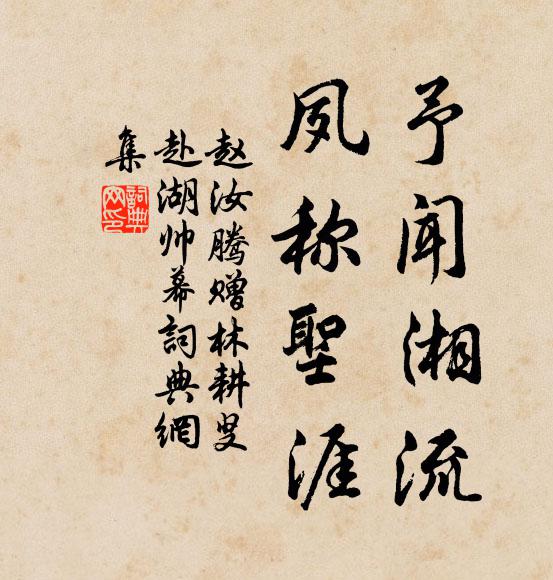 予闻湘流
夙称聖涯
赵汝腾赠林耕叟
赴湖帅幕詞典網
集
詞典網印